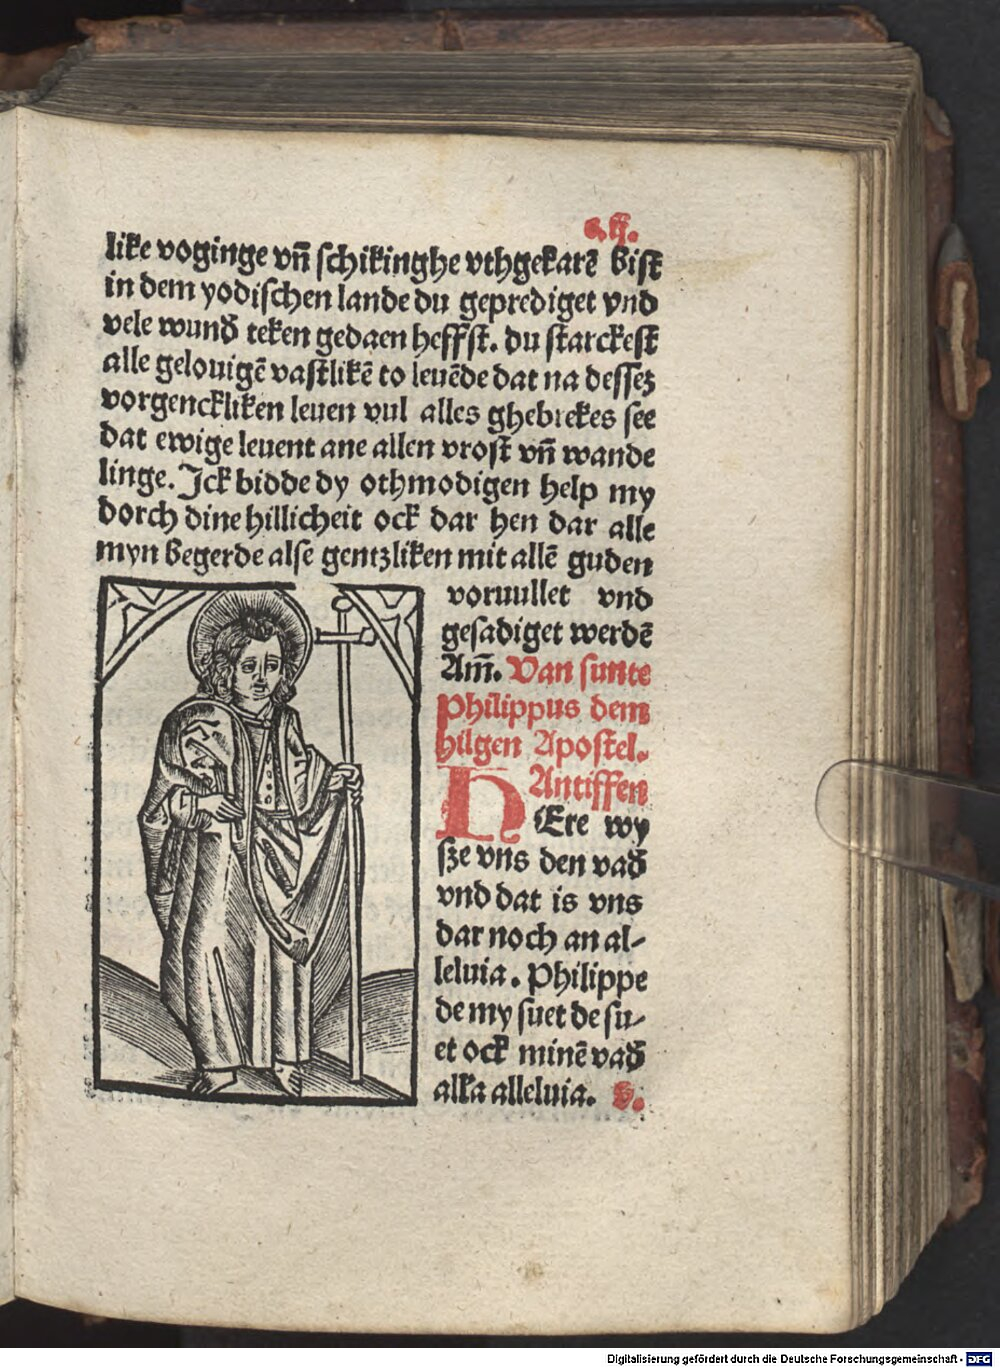 like voginge vñ schikinghe vthgekarē bist
in dem yodischen lande du geprediget vnd
vele wund̄ teken gedaen heffst. du starckest
alle gelouigē vastlikē to leuēde dat na dessez
vorgenckliken leuen vul alles ghebrekes see
dat ewige leuent ane allen vrost vñ wande
linge. Jck bidde dy othmodigen help my
dorch dine hillicheit ock dar hen dar alle
myn begerde alse gentzliken mit allē guden
voruullet vnd
gesadiget werdē
Am̄. Van sunte
Philippus dem
hilgen Apostel.
Antiffen
HEre wy
sze vns den vad̄
vnd dat is vns
dar noch an al-
leluia. Philippe
de my suet de su-
et ock minē vad̄
alla alleluia. V.
Digitalisierung gefördert durch die Deutsche Forschungsgemeinschaft - DFG